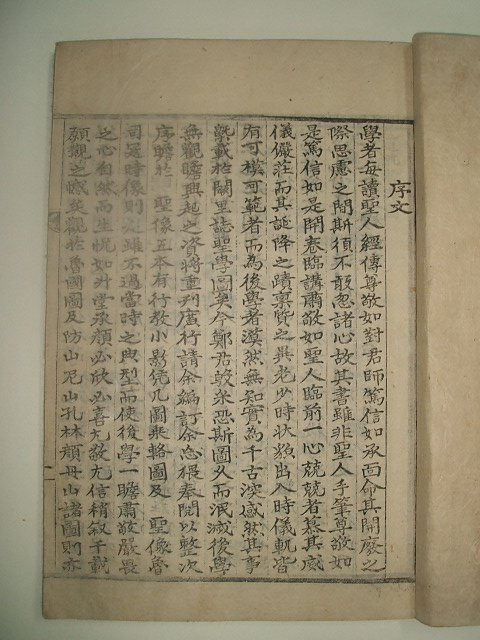 序文
學者每讀聖人經傳尊敬如對君師篤信如承面命其開廢之
際思慮之間斯須不敢忽諸心故其書雖非聖人手筆尊敬如
是篤信如是開卷臨講肅敬如聖人臨前一心兢兢者慕其威
儀儼莊而其誕降之蹟稟質之異老少時狀貌出入時儀軌皆
有可模可範者而為後學者漠然無知實為千古決感然其事
蹟載於闕里誌聖學圖矣今鄭君毅采恐斯圖久而泯滅後學
無觀瞻興起之資將重刊廣行請余編訂余忘猥奉閱以整次
序瞻於 聖像五本有行教小影凭几圖乘輅圖及 聖像魯
司寇時像則此雖不過當時之典型而使後學一瞻肅敬嚴畏
之心自然而生怳如升堂承顏必欣必喜尤敬尤信稍叙千載
願觀之懷矣觀於魯國圖及防山尼山孔林顏母山諸圖則亦